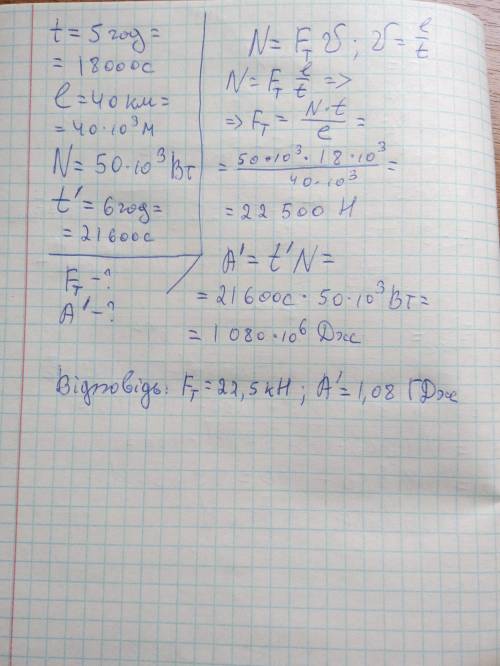 t = 5 год =
= 18000с
l = 40 км =
= 40·10³ м
N = 50·10³ Вт
t' = 6 год =
= 21600с
Fт - ?
A' - ?
N = Fт v ; v = l/t
N = Fт l/t =>
=> Fт = N·t/l =
= 50·10³·18·10³/40·10³ =
= 22 500 Н
A' = t'N =
= 21600с · 50·10³ Вт =
= 1 080·10⁶ Дж
Відповідь: Fт = 22,5 кН ; A' = 1,08 ГДж